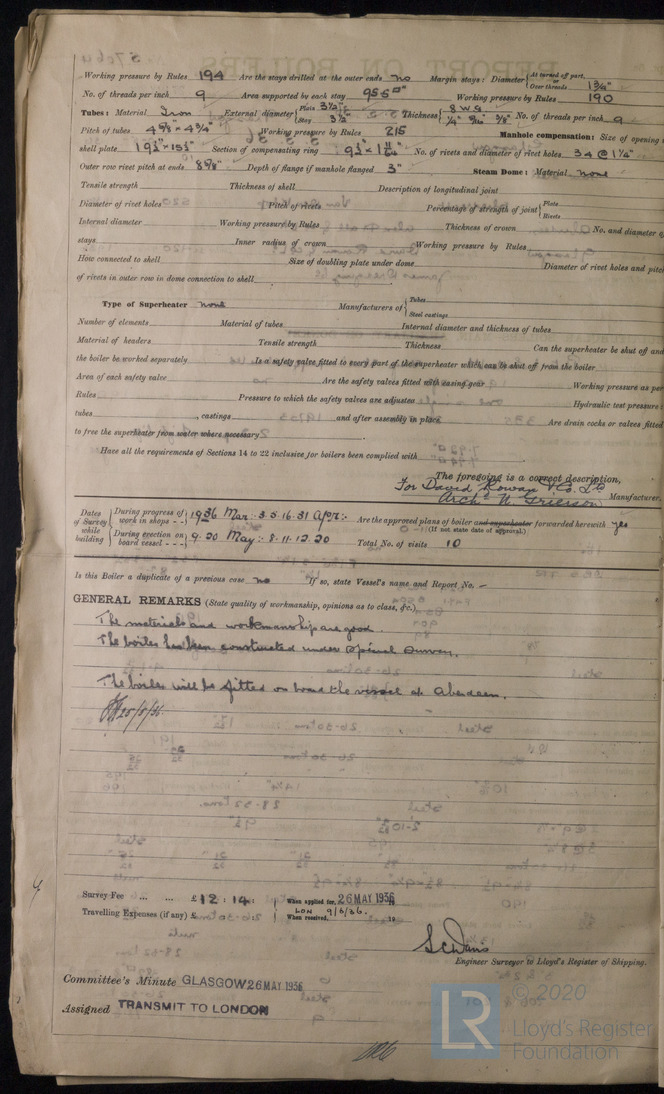 Working pressure by Rules 194 Are the stays drilled at the outer ends no Margin stays: Diameter { At turned off part, or Over threads 1¾"
No. of threads per inch 9 Area supported by each stay Working pressure by Rules 190
Tubes: Material Iron External diameter { Plain 3½" Stay 3½" Thickness { 8 W.G. ¼" 5/16" 3/8" No. of threads per inch 9
Pitch of tubes 4 5/8" × 4¾" Working pressure by Rules 215 Manhole compensation: Size of opening
shell plate 19½" × 15½" Section of compensating ring No. of rivets and diameter of rivet holes 34 @ 1¼"
Outer row rivet pitch at ends 8 5/8" Depth of flange if manhole flanged 3" Steam Dome: Material none
Tensile strength Thickness of shell Description of longitudinal joint
Diameter of rivet holes Pitch of rivets Percentage of strength of joint { Plate Rivets
Internal diameter Working pressure by Rules Thickness of crown No. and diameter of
stays Inner radius of crown Working pressure by Rules
How connected to shell Size of doubling plate under dome Diameter of rivet holes and pitch
of rivets in outer row in dome connection to shell
Type of Superheater none Manufacturers of { Tubes Steel castings
Number of elements Material of tubes Internal diameter and thickness of tubes
Material of headers Tensile strength Thickness Can the superheater be shut off and
the boiler be worked separately Is a safety valve fitted to every part of the superheater which can be shut off from the boiler
Area of each safety valve Are the safety valves fitted with easing gear Working pressure as per
Rules Pressure to which the safety valves are adjusted Hydraulic test pressure:
tubes , castings and after assembly in place Are drain cocks or valves fitted
to free the superheater from water where necessary
Have all the requirements of Sections 14 to 22 inclusive for boilers been complied with
The foregoing is a correct description,
For David Rowan & Co. Ld
Arch. W Grierson Manufacturer.
Dates of Survey while building { During progress of work in shops - - 1936 Mar: 3.5.16.31 Apr:- Are the approved plans of boiler and superheater forwarded herewith yes
(If not state date of approval.)
During erection on board vessel - - - 9.20 May:- 8.11.12.20 Total No. of visits 10
Is this Boiler a duplicate of a previous case no If so, state Vessel's name and Report No. -
GENERAL REMARKS (State quality of workmanship, opinions as to class, &c.)
The materials and workmanship are good.
The boiler has been constructed under special survey.
The boiler will be fitted on board the vessel at Aberdeen.
25/5/36
Survey Fee ... ... £12 : 14 : When applied for, 26 MAY 1936
Travelling Expenses (if any) £ : : When received, LON 9/6/36. 19
S C Davis
Engineer Surveyor to Lloyd's Register of Shipping.
Committee's Minute GLASGOW 26 MAY 1936
Assigned TRANSMIT TO LONDON
LR
© 2020
Lloyd's Register
Foundation